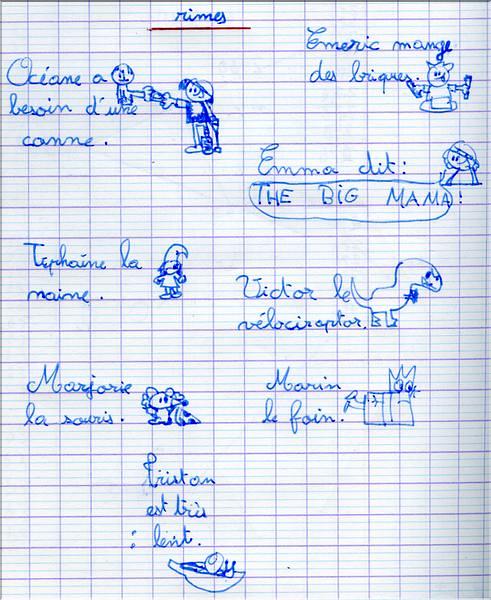 rimes
Océane a
besoin d'une
canne.
Emeric mange
des briques.
Emma dit :
THE BIG MAMA !
Typhaine la
naine.
Victor le
vélociraptor.
Marjorie
la souris.
Marin
le foin.
Tristan
est très
: lent.